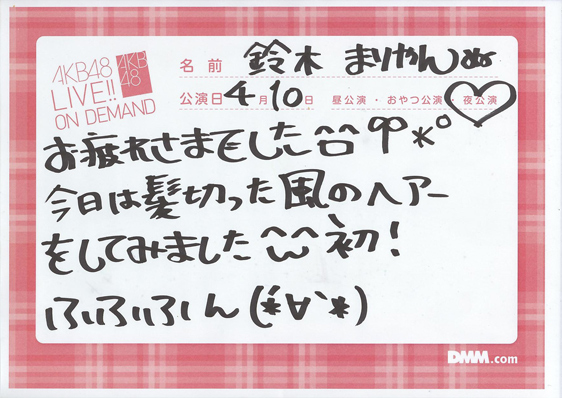 AKB48
LIVE!!
ON DEMAND
AKB
48
名前 鈴木 まりやんぬ
公演日 4月10日 昼公演・おやつ公演・夜公演
お疲れさまでした^^
今日は髪切った風のヘアー
をしてみました^^初!
ふふふん(*´∀`*)
DMM.com